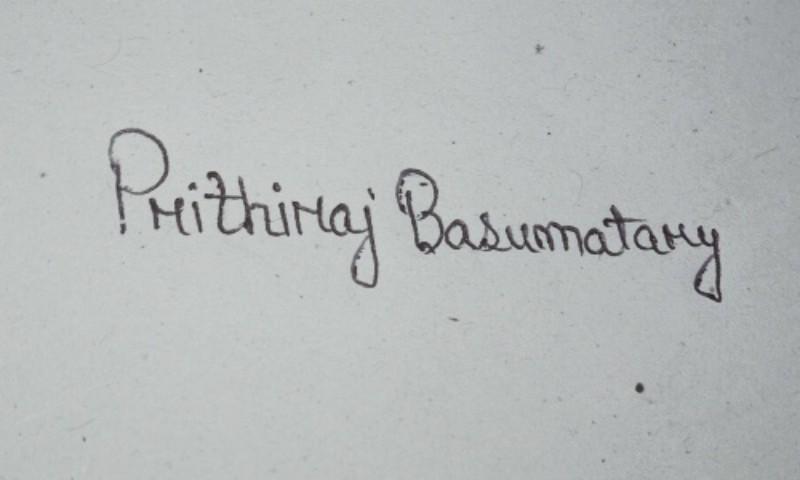 Prithiraj Basumatary